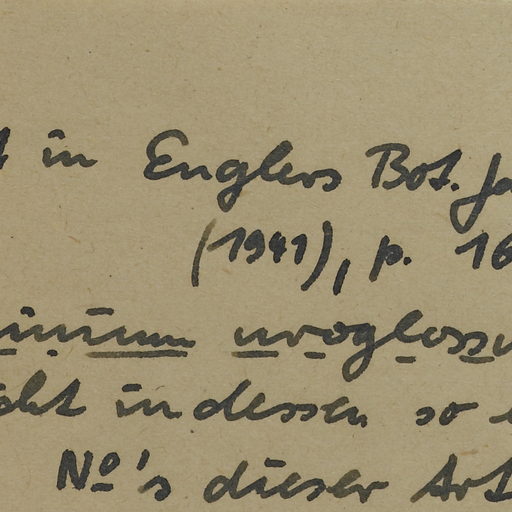 in Englers Bot. Ja
(1941), p. 16
uroglossu
indessen so
Nº's dieser Art